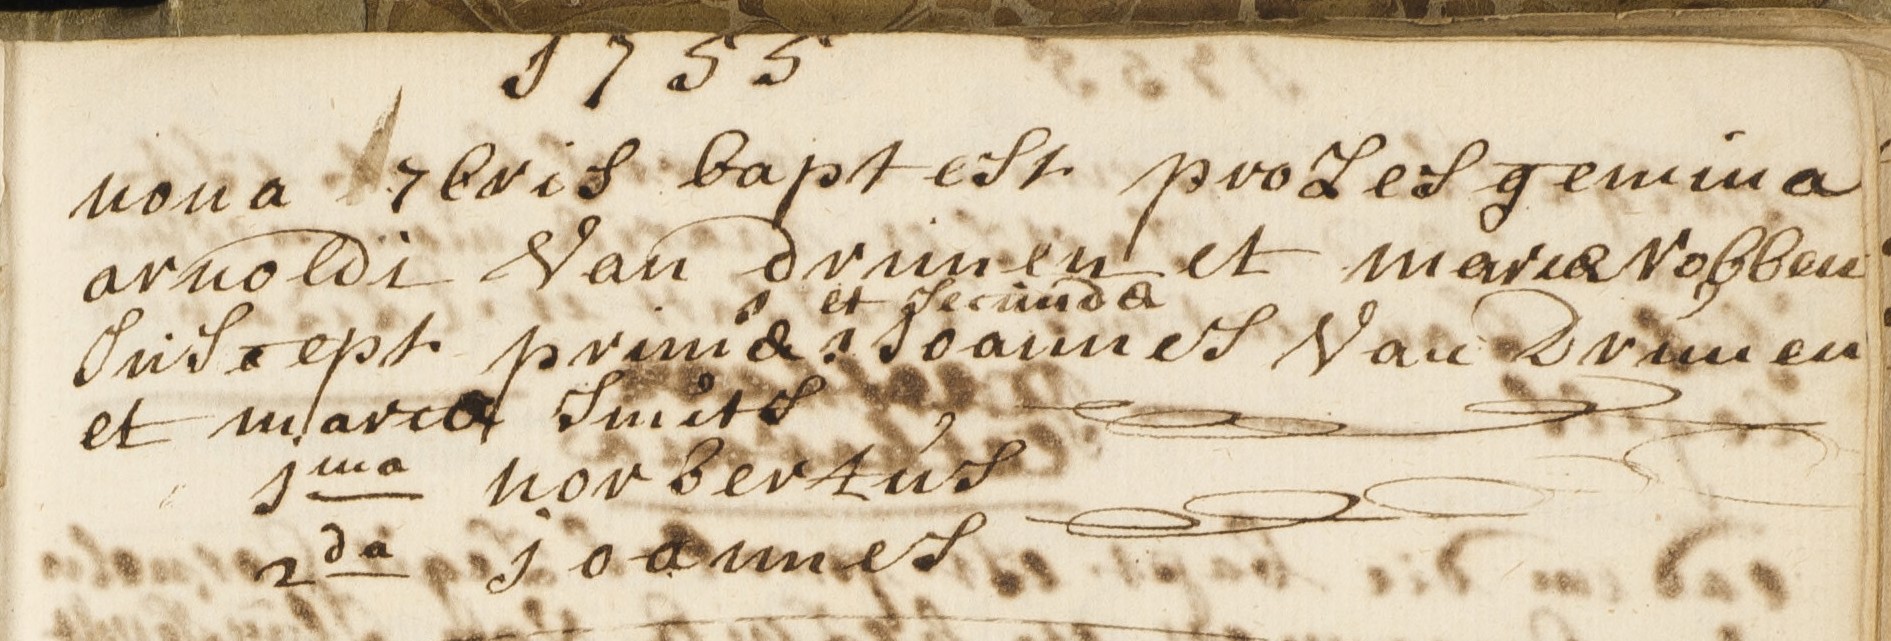 1755
nona 7bris bapt est proles gemina
arnoldi Van drunen et mariæ robben
et secundæ
Suscept primæ : Joannes Van Drunen
et maria Smits
1ma norbertus
2da joannes